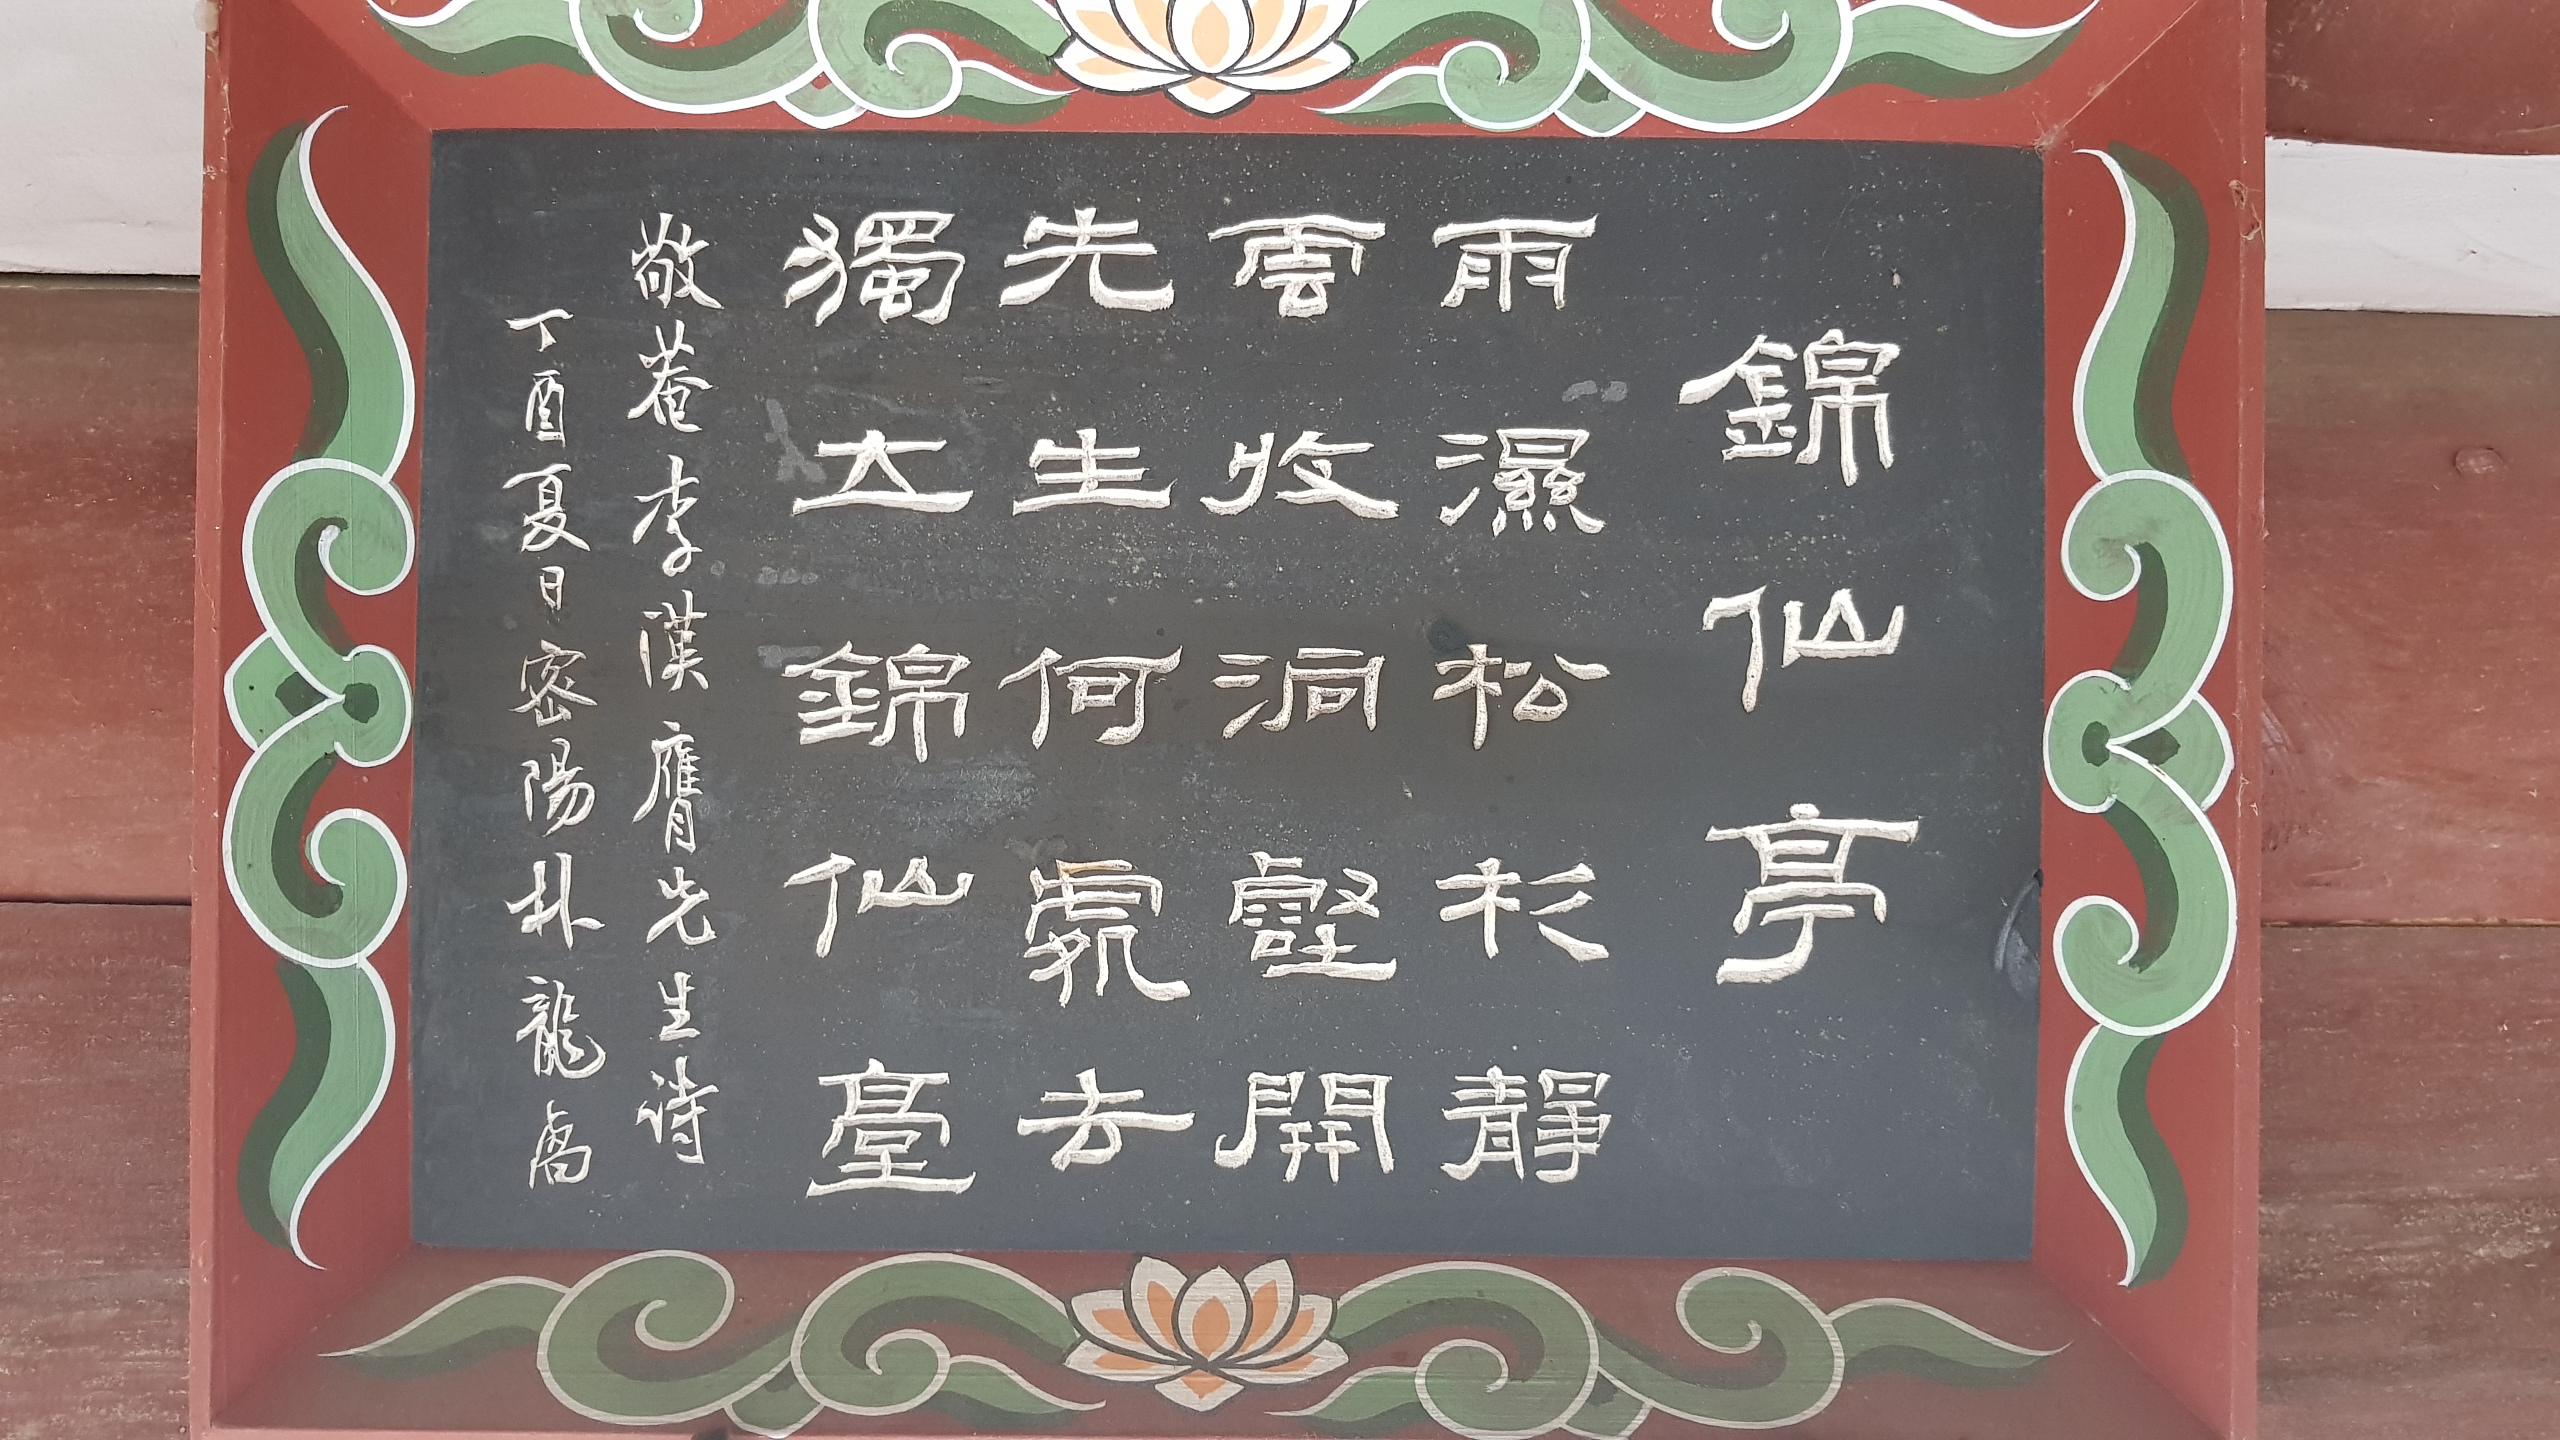 錦仙亭
雨濕松杉靜
雲收洞壑開
先生何處去
獨立錦仙臺
敬菴李漢膺先生詩
丁酉夏日密陽朴龍卨